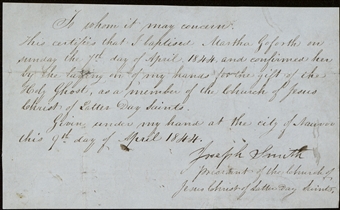 To whom it may concern.
This certifies that I baptised Martha Goforth on
sunday the 7th day of April 1844, and confirmed her
by the laying on of my hands for the gift of the
Holy Ghost, as a member of the Church of Jesus
Christ of Latter Day Saints.
Giving under my hand at the city of Nauvoo
this 9th day of April 1844.
Joseph Smith
president of the Church of
Jesus Christ of Latter Day Saints.